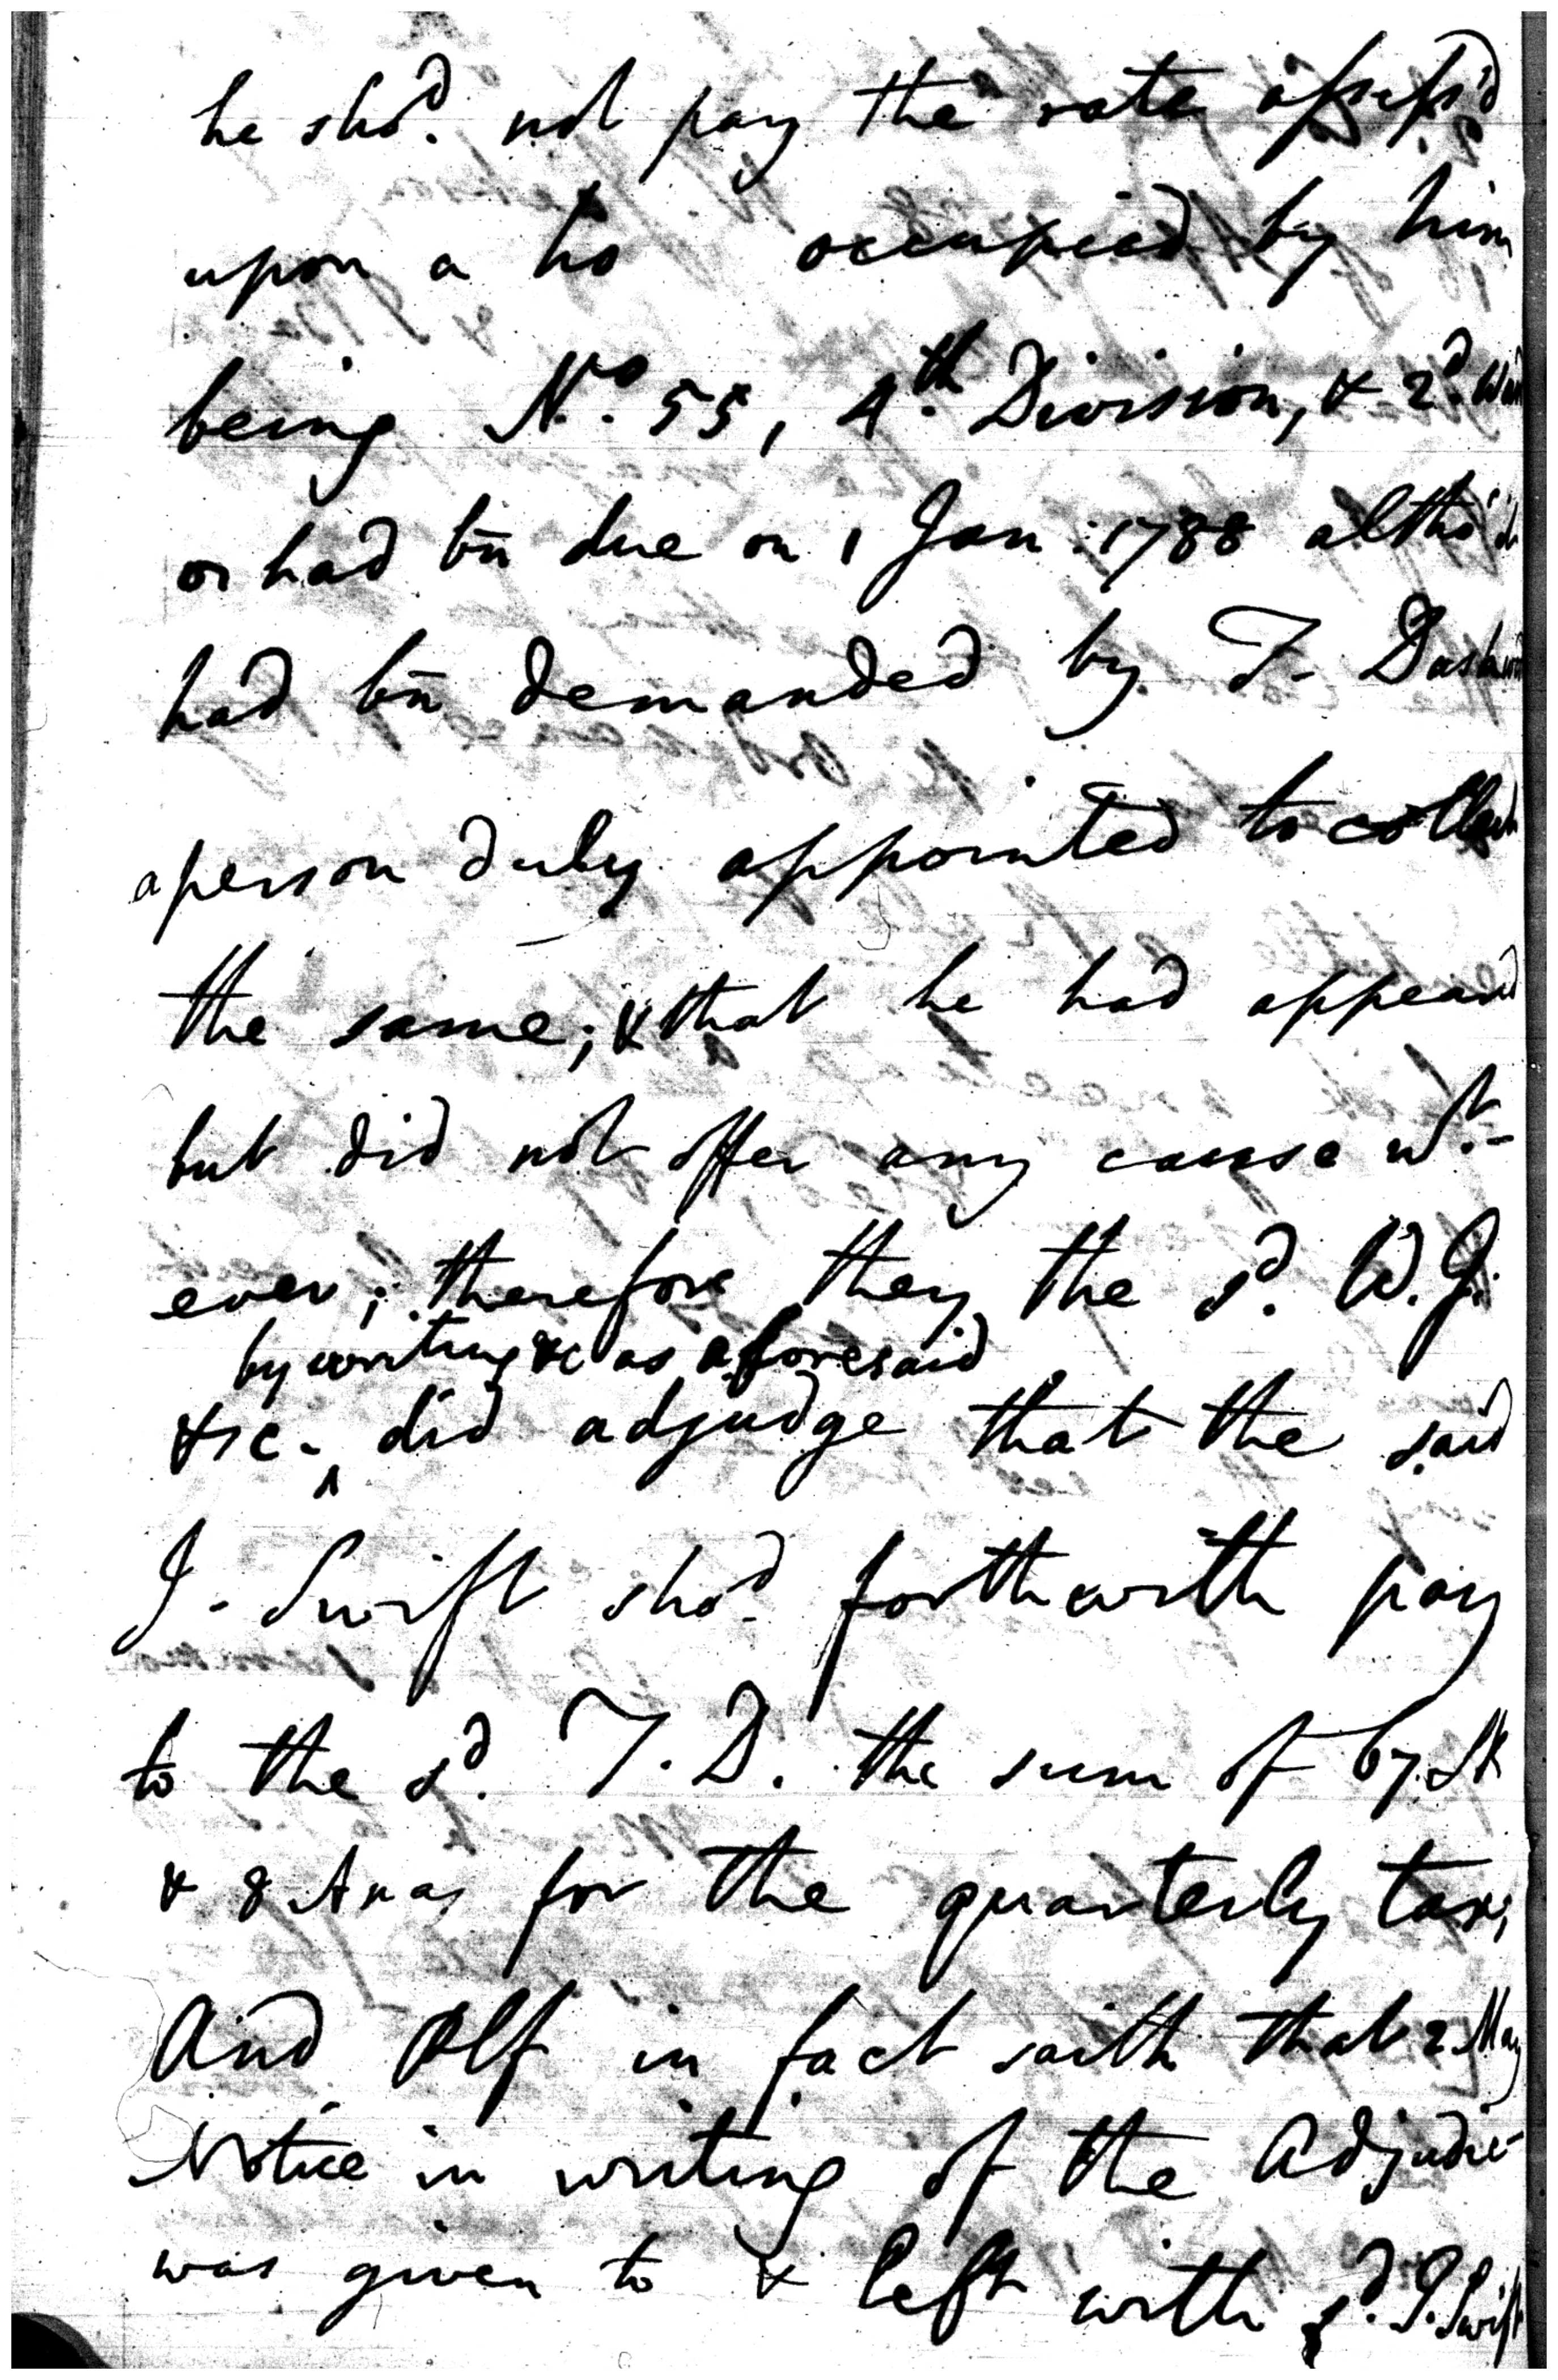 he sho.^d not pay the rate assess'd
upon a ho occupied by him
being N.^o 55, 4.^th Division, & 2.^d
or had bn due on 1 Jan. 1788 altho'
had bn demanded by T.
a person duly appointed to collect
the same; & that he had appeared
but did not offer any cause w.^t-
ever; therefore they the s.^d W.J.
by writing &c as aforesaid
&c. ^ did adjudge that the said
J. Swift sho.^d forthwith pay
to the s.^d T.D. the sum of 67
& 8 Anas for the quarterly tax;
And Plf in fact saith that 2 May
Notice in writing of the Adjudic-
was given to & left with s.^d J. Swift